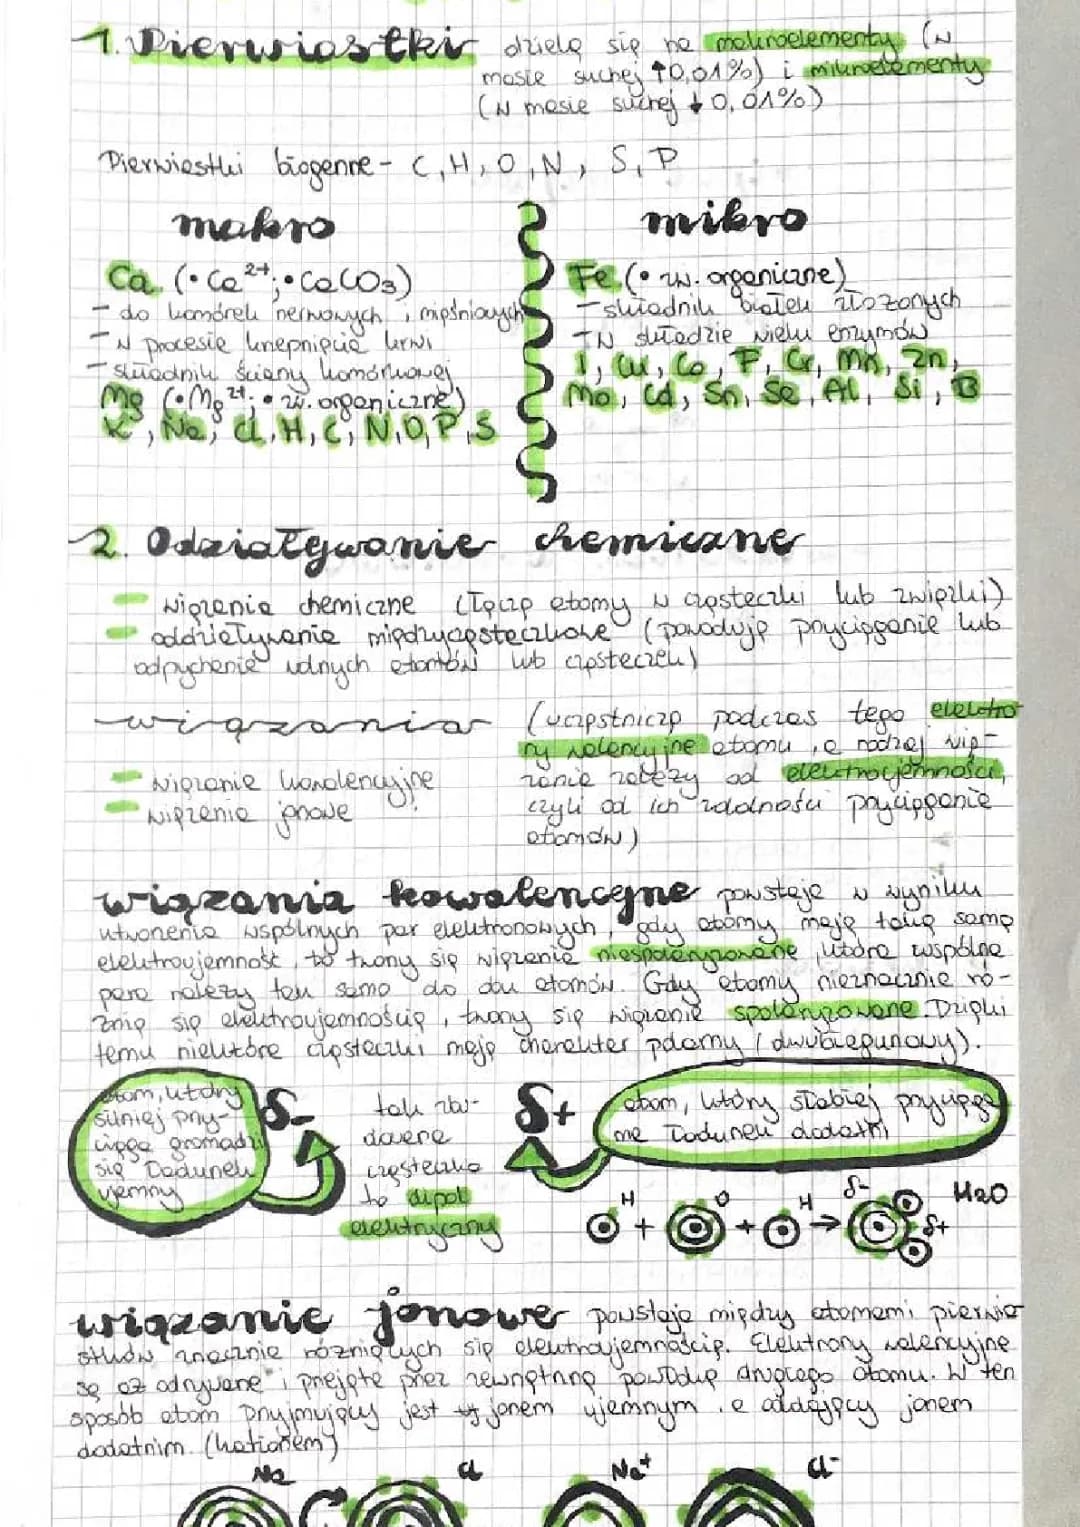 1. Pierwiastki dzielą się na makroelementy (w
masie suchej ↑0,01%) i mikroelementy
(w masie suchej ↓0,01%)
Pierwiastki biogenne - C, H, O, N, S, P
makro
Ca (•Ca²⁺; •CaCO₃)
- do komórek nerwowych, mięśniowych
- w procesie krzepnięcia krwi
- składnik ściany komórkowej
Mg (•Mg²⁺; • zw. organiczne)
K, Na, Cl, H, C, N, O, P, S
mikro
Fe (• zw. organiczne)
- składnik białek złożonych
- w składzie wielu enzymów
I, Cu, Co, F, Cr, Mn, Zn,
Mo, Cd, Sn, Se, Al, Si, B
2. Odziaływanie chemiczne
- wiązania chemiczne (łączą atomy w cząsteczki lub związki)
- oddziaływania międzycząsteczkowe (powodują przyciąganie lub
odpychanie atomów lub cząsteczek)
wiązania
- wiązanie kowalencyjne
- wiązanie jonowe
(uczestniczą podczas tego elektro
ny walencyjne atomu, a rodzaj wią-
zania zależy od elektroujemności,
czyli od ich zdolności przyciągania
atomów)
wiązania kowalencyjne powstaje w wyniku
utworzenia wspólnych par elektronowych, gdy atomy mają taką samą
elektroujemność, to tworzy się wiązanie niespolaryzowane, która wspólna
para należy tak samo do dwu atomów. Gdy atomy nieznacznie ró-
żnią się elektroujemnością, tworzy się wiązanie spolaryzowane. Dzięki
temu niektóre cząsteczki mają charakter polarny (dwubiegunowy).
atom, który
silniej przy-
ciąga gromadzi
się ładunek
ujemny
δ-
tak zw-
dawana
cząsteczka
to dipol
elektryczny
δ+
atom, który słabiej przyciąga
ma ładunek dodatni
H + O + H → δ- δ+ H2O
wiązanie jonowe powstaje między atomami pierwia
stków znacznie różniących się elektroujemnością. Elektrony walencyjne
są aż odrywane" i przejęte przez zewnętrzną powłokę drugiego atomu. W ten
sposób atom przyjmujący jest jonem ujemnym, a oddający jonem
dodatnim. (kationem)
Na Cl Na⁺ Cl⁻